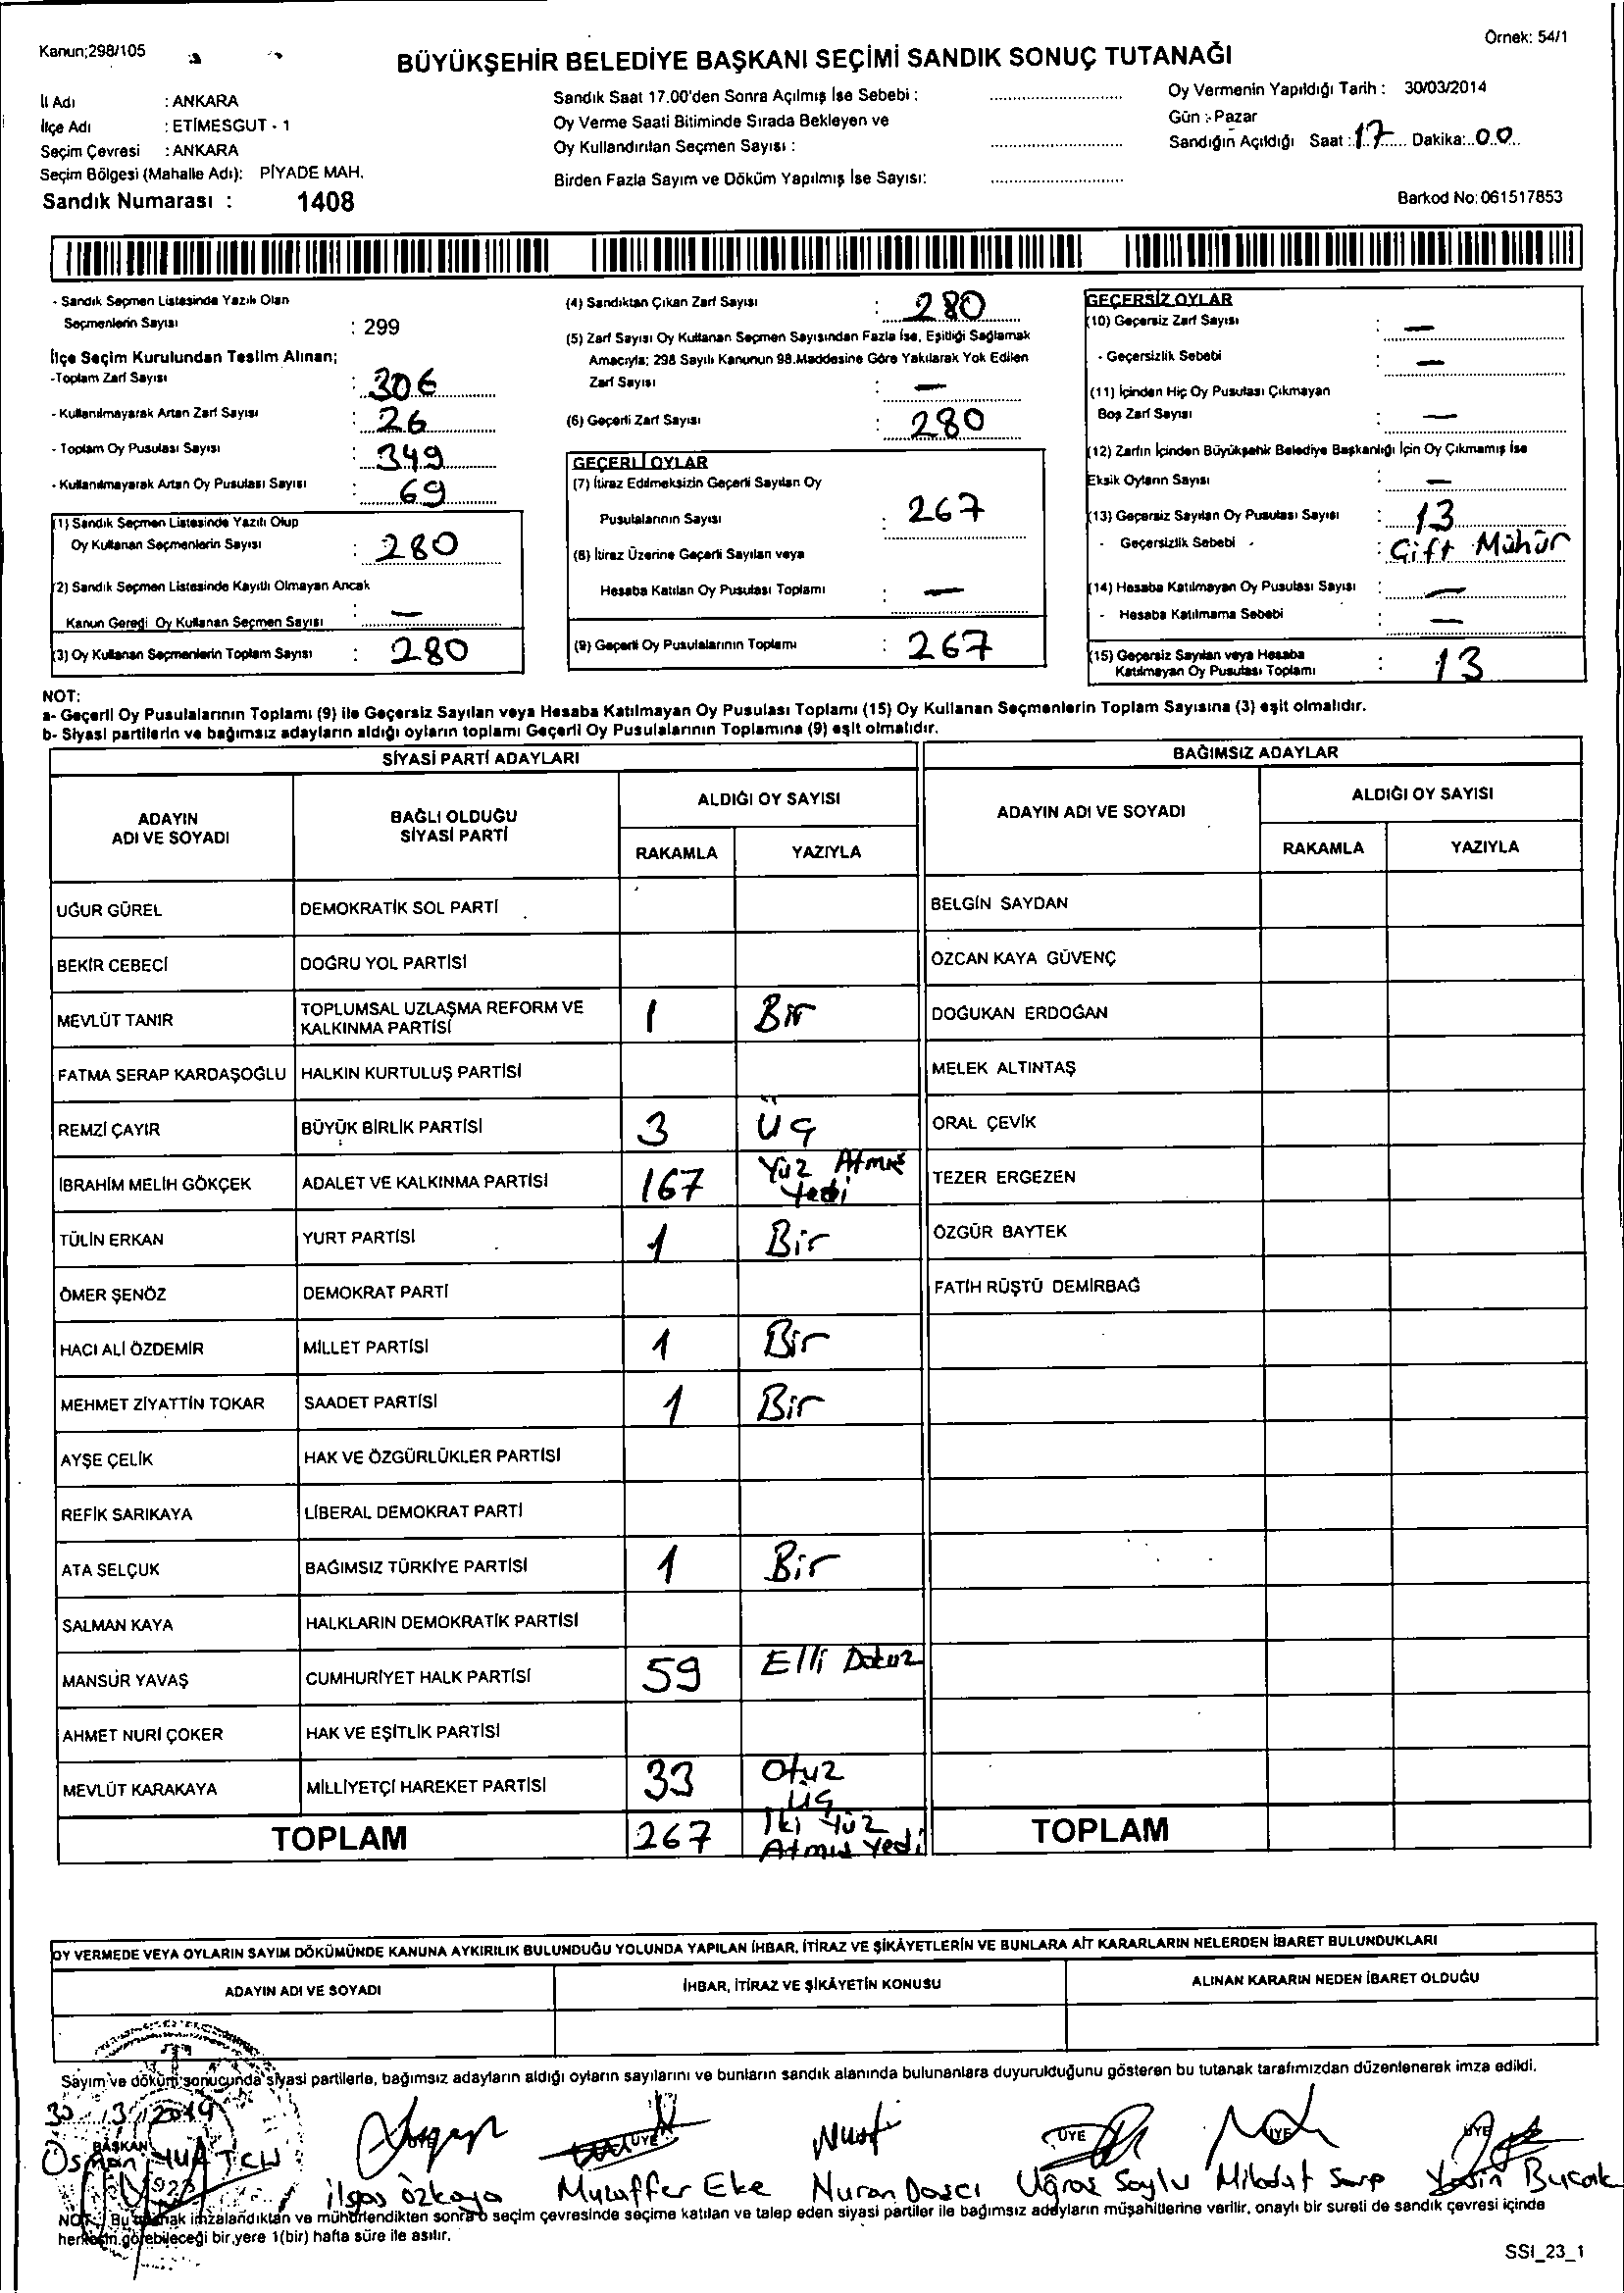 Kanun;298/105
Örnek: 54/1
BÜYÜKŞEHİR BELEDİYE BAŞKANI SEÇİMİ SANDIK SONUÇ TUTANAĞI
İl Adı : ANKARA
İlçe Adı : ETİMESGUT - 1
Seçim Çevresi : ANKARA
Seçim Bölgesi (Mahalle Adı): PİYADE MAH.
Sandık Numarası : 1408
Sandık Saat 17.00'den Sonra Açılmış İse Sebebi :
Oy Verme Saati Bitiminde Sırada Bekleyen ve
Oy Kullandırılan Seçmen Sayısı :
Birden Fazla Sayım ve Döküm Yapılmış İse Sayısı:
Oy Vermenin Yapıldığı Tarih : 30/03/2014
Gün : Pazar
Sandığın Açıldığı Saat : 17 Dakika: 00
Barkod No: 061517853
- Sandık Seçmen Listesinde Yazılı Olan
Seçmenlerin Sayısı : 299
İlçe Seçim Kurulundan Teslim Alınan;
-Toplam Zarf Sayısı : 306
- Kullanılmayarak Artan Zarf Sayısı : 26
- Toplam Oy Pusulası Sayısı : 349
- Kullanılmayarak Artan Oy Pusulası Sayısı : 69
(1) Sandık Seçmen Listesinde Yazılı Olup
Oy Kullanan Seçmenlerin Sayısı : 280
(2) Sandık Seçmen Listesinde Kayıtlı Olmayan Ancak
Kanun Gereği Oy Kullanan Seçmen Sayısı : —
(3) Oy Kullanan Seçmenlerin Toplam Sayısı : 280
(4) Sandıktan Çıkan Zarf Sayısı : 280
(5) Zarf Sayısı Oy Kullanan Seçmen Sayısından Fazla İse, Eşitliği Sağlamak
Amacıyla; 298 Sayılı Kanunun 98.Maddesine Göre Yakılarak Yok Edilen
Zarf Sayısı : —
(6) Geçerli Zarf Sayısı : 280
GEÇERLİ OYLAR
(7) İtiraz Edilmeksizin Geçerli Sayılan Oy
Pusulalarının Sayısı : 267
(8) İtiraz Üzerine Geçerli Sayılan veya
Hesaba Katılan Oy Pusulası Toplamı : —
(9) Geçerli Oy Pusulalarının Toplamı : 267
GEÇERSİZ OYLAR
(10) Geçersiz Zarf Sayısı : —
- Geçersizlik Sebebi : —
(11) İçinden Hiç Oy Pusulası Çıkmayan
Boş Zarf Sayısı : —
(12) Zarfın İçinden Büyükşehir Belediye Başkanlığı İçin Oy Çıkmamış İse
Eksik Oyların Sayısı : —
(13) Geçersiz Sayılan Oy Pusulası Sayısı : 13
- Geçersizlik Sebebi - : Çift Mühür
(14) Hesaba Katılmayan Oy Pusulası Sayısı : —
- Hesaba Katılmama Sebebi : —
(15) Geçersiz Sayılan veya Hesaba
Katılmayan Oy Pusulası Toplamı : 13
NOT:
a- Geçerli Oy Pusulalarının Toplamı (9) ile Geçersiz Sayılan veya Hesaba Katılmayan Oy Pusulası Toplamı (15) Oy Kullanan Seçmenlerin Toplam Sayısına (3) eşit olmalıdır.
b- Siyasi partilerin ve bağımsız adayların aldığı oyların toplamı Geçerli Oy Pusulalarının Toplamına (9) eşit olmalıdır.
SİYASİ PARTİ ADAYLARI
ADAYIN ADI VE SOYADI
BAĞLI OLDUĞU SİYASİ PARTİ
ALDIĞI OY SAYISI
RAKAMLA YAZIYLA
UĞUR GÜREL DEMOKRATİK SOL PARTİ
BEKİR CEBECİ DOĞRU YOL PARTİSİ
MEVLÜT TANIR TOPLUMSAL UZLAŞMA REFORM VE KALKINMA PARTİSİ 1 Bir
FATMA SERAP KARDAŞOĞLU HALKIN KURTULUŞ PARTİSİ
REMZİ ÇAYIR BÜYÜK BİRLİK PARTİSİ 3 Üç
İBRAHİM MELİH GÖKÇEK ADALET VE KALKINMA PARTİSİ 167 Yüz Atmış Yedi
TÜLİN ERKAN YURT PARTİSİ 1 Bir
ÖMER ŞENÖZ DEMOKRAT PARTİ
HACI ALİ ÖZDEMİR MİLLET PARTİSİ 1 Bir
MEHMET ZİYATTİN TOKAR SAADET PARTİSİ 1 Bir
AYŞE ÇELİK HAK VE ÖZGÜRLÜKLER PARTİSİ
REFİK SARIKAYA LİBERAL DEMOKRAT PARTİ
ATA SELÇUK BAĞIMSIZ TÜRKİYE PARTİSİ 1 Bir
SALMAN KAYA HALKLARIN DEMOKRATİK PARTİSİ
MANSUR YAVAŞ CUMHURİYET HALK PARTİSİ 59 Elli Dokuz
AHMET NURİ ÇOKER HAK VE EŞİTLİK PARTİSİ
MEVLÜT KARAKAYA MİLLİYETÇİ HAREKET PARTİSİ 33 Otuz üç
TOPLAM 267 İki Yüz Atmış Yedi
BAĞIMSIZ ADAYLAR
ADAYIN ADI VE SOYADI
ALDIĞI OY SAYISI
RAKAMLA YAZIYLA
BELGİN SAYDAN
ÖZCAN KAYA GÜVENÇ
DOĞUKAN ERDOĞAN
MELEK ALTINTAŞ
ORAL ÇEVİK
TEZER ERGEZEN
ÖZGÜR BAYTEK
FATİH RÜŞTÜ DEMİRBAĞ
TOPLAM
OY VERMEDE VEYA OYLARIN SAYIM DÖKÜMÜNDE KANUNA AYKIRILIK BULUNDUĞU YOLUNDA YAPILAN İHBAR, İTİRAZ VE ŞİKÂYETLERİN VE BUNLARA AİT KARARLARIN NELERDEN İBARET BULUNDUKLARI
ADAYIN ADI VE SOYADI İHBAR, İTİRAZ VE ŞİKÂYETİN KONUSU ALINAN KARARIN NEDEN İBARET OLDUĞU
Sayım ve döküm sonucunda siyasi partilerle, bağımsız adayların aldığı oyların sayılarını ve bunların sandık alanında bulunanlara duyurulduğunu gösteren bu tutanak tarafımızdan düzenlenerek imza edildi.
30/3/2014
BAŞKAN ÜYE ÜYE ÜYE ÜYE ÜYE
Osman ilgas özkaya Muzaffer Eke Nuran Davcı Uğraş Soylu Mibadat Sarp Yasin Bucak
NOT: Bu tutanak imzalandıktan ve mühürlendikten sonra o seçim çevresinde seçime katılan ve talep eden siyasi partiler ile bağımsız adayların müşahitlerine verilir, onaylı bir sureti de sandık çevresi içinde
herkesin görebileceği bir yere 1(bir) hafta süre ile asılır.
SSI_23_1